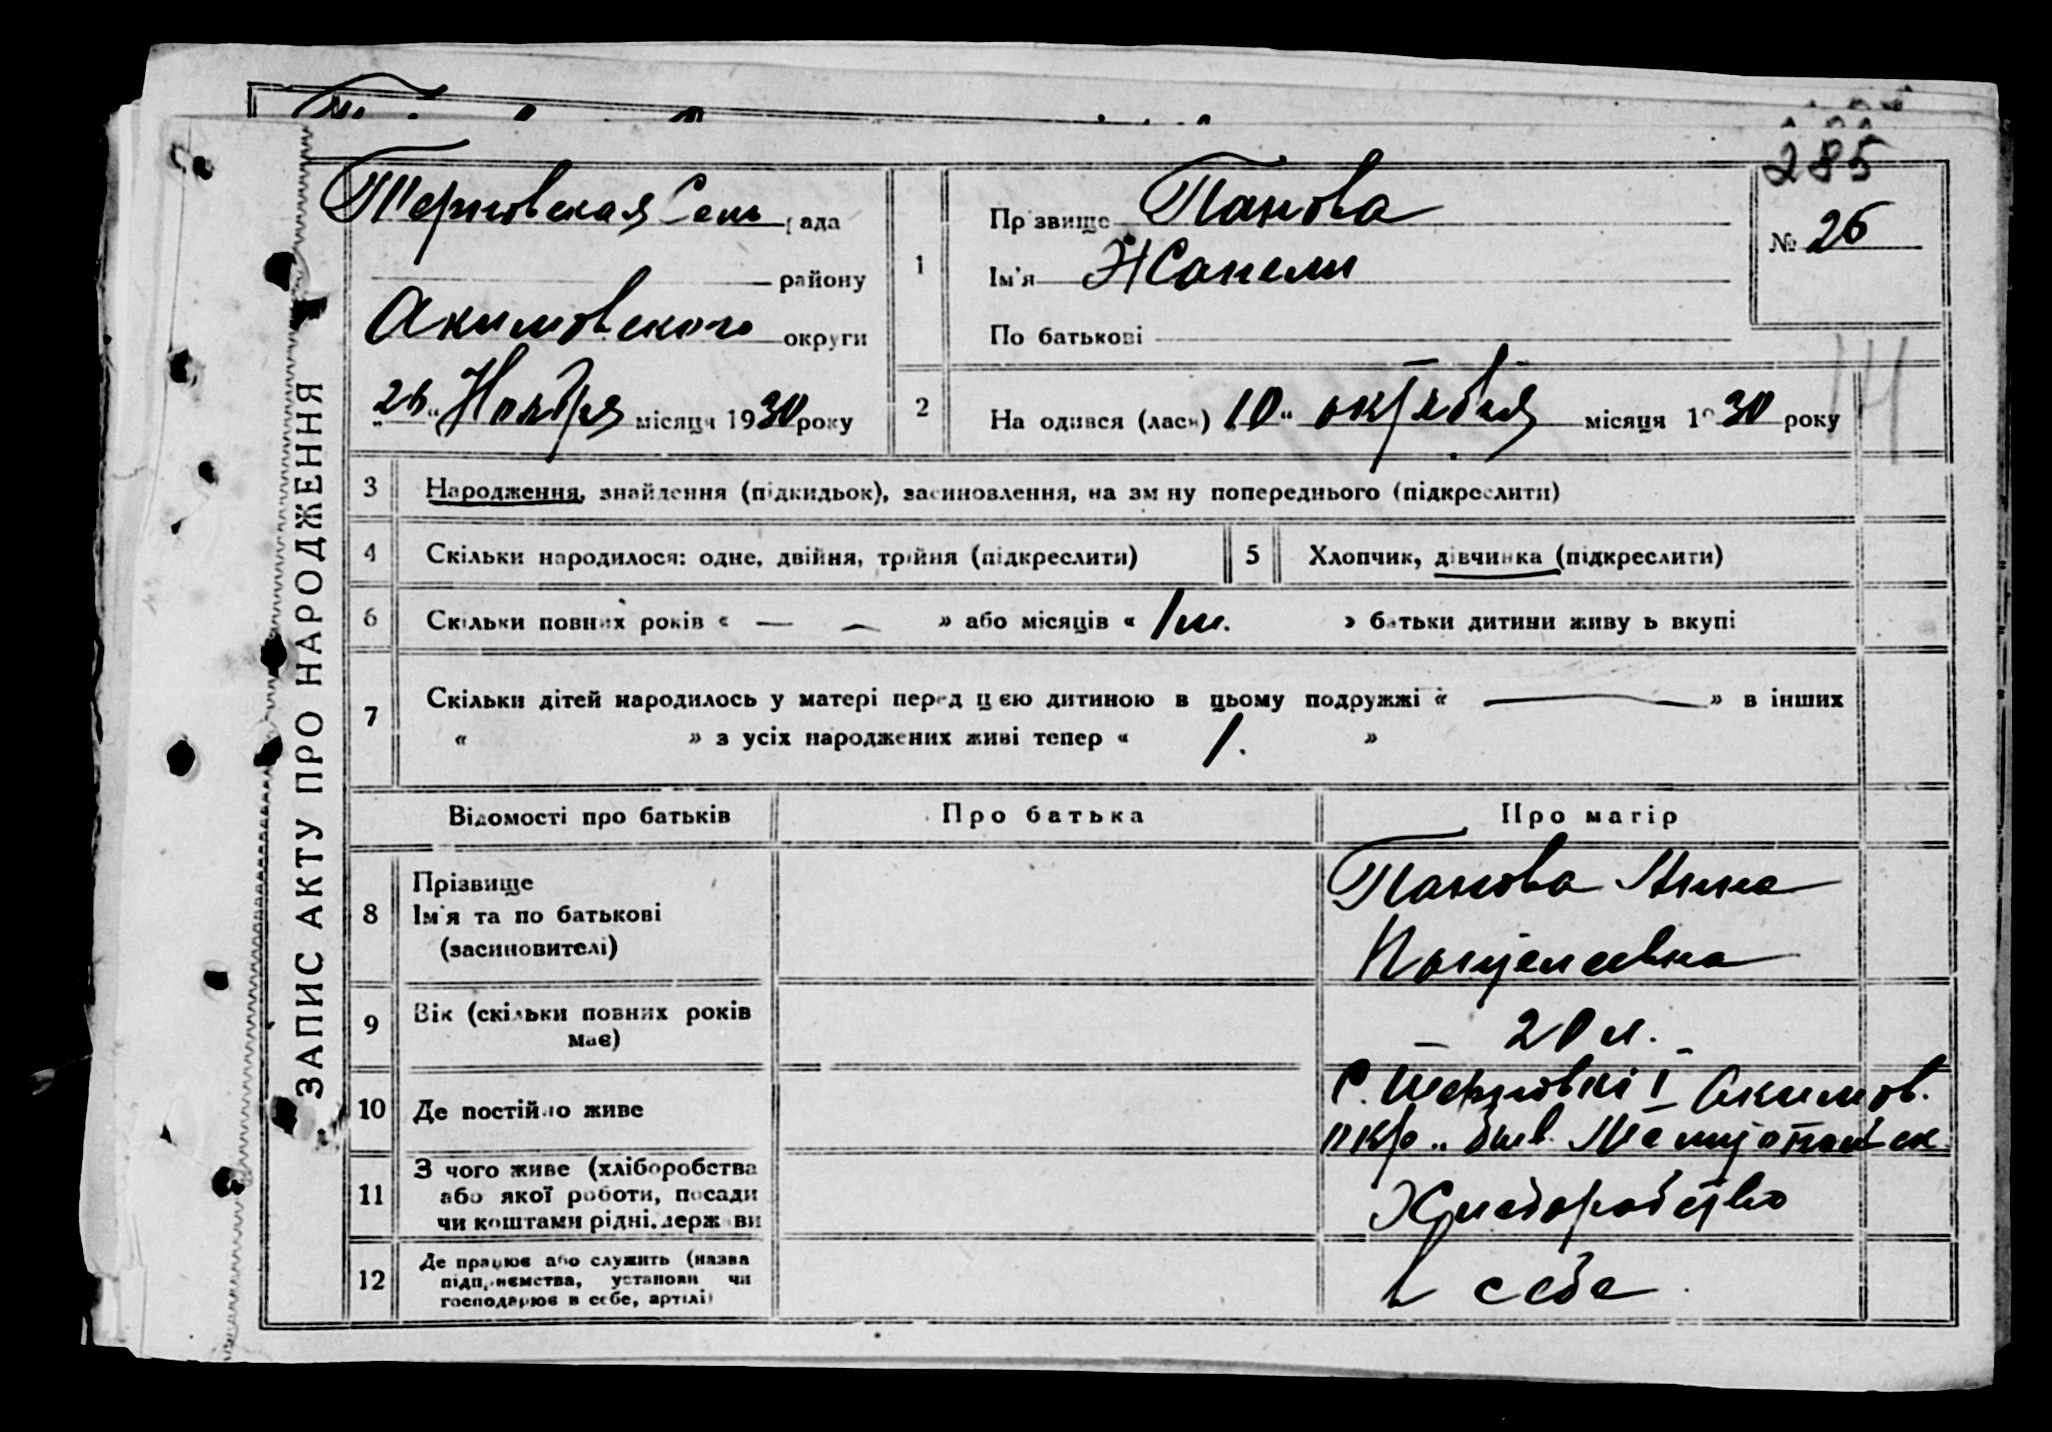 285
ЗАПИС АКТУ ПРО НАРОДЖЕННЯ
Терновская Сель рада
району
Акимовского округи
„26" Ноября місяця 1930 року
1
Прізвище Панова
Ім'я Жанели
По батькові
№ 26
2
На одився (лась) „10" октября місяця 1930 року
3 Народження, знайдення (підкидьок), засиновлення, на зміну попереднього (підкреслити)
4 Скільки народилося: одне, двійня, трійня (підкреслити)
5 Хлопчик, дівчинка (підкреслити)
6 Скільки повних років « — — » або місяців « 1 м. » батьки дитини живуть вкупі
7 Скільки дітей народилось у матері перед цією дитиною в цьому подружжі « — » в інших
« » з усіх народжених живі тепер « 1. »
Відомості про батьків
Про батька
Про матір
8 Прізвище
Ім'я та по батькові
(засиновителі)
Панова Анна
9 Вік (скільки повних років
має)
20 л.
10 Де постійно живе
С. Терновкі I Акимов.
окр.
11 З чого живе (хліборобства
або якої роботи, посади
чи коштами рідні, держави
Хлиборобство
12 Де працює або служить (назва
підприємства, установи чи
господарює в себе, артілі)
в себе